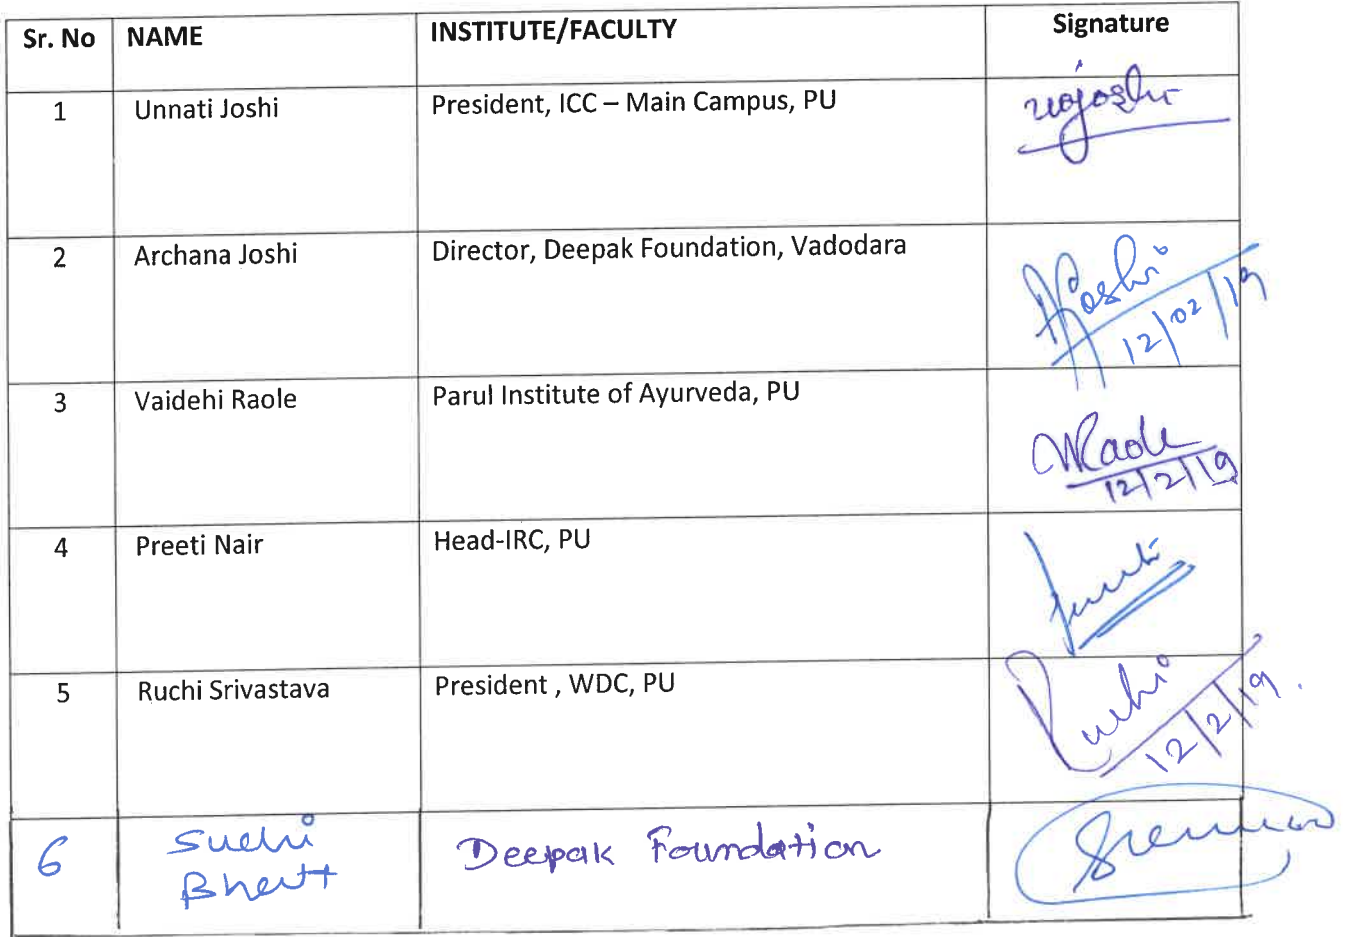 Sr. No NAME INSTITUTE/FACULTY Signature
1 Unnati Joshi President, ICC – Main Campus, PU
uojoshi
2 Archana Joshi Director, Deepak Foundation, Vadodara
AJoshi
12/02/19
3 Vaidehi Raole Parul Institute of Ayurveda, PU
VRaole
12/2/19
4 Preeti Nair Head-IRC, PU
5 Ruchi Srivastava President , WDC, PU
Ruchi
12/2/19.
6 Suchi Deepak Foundation
Bhatt